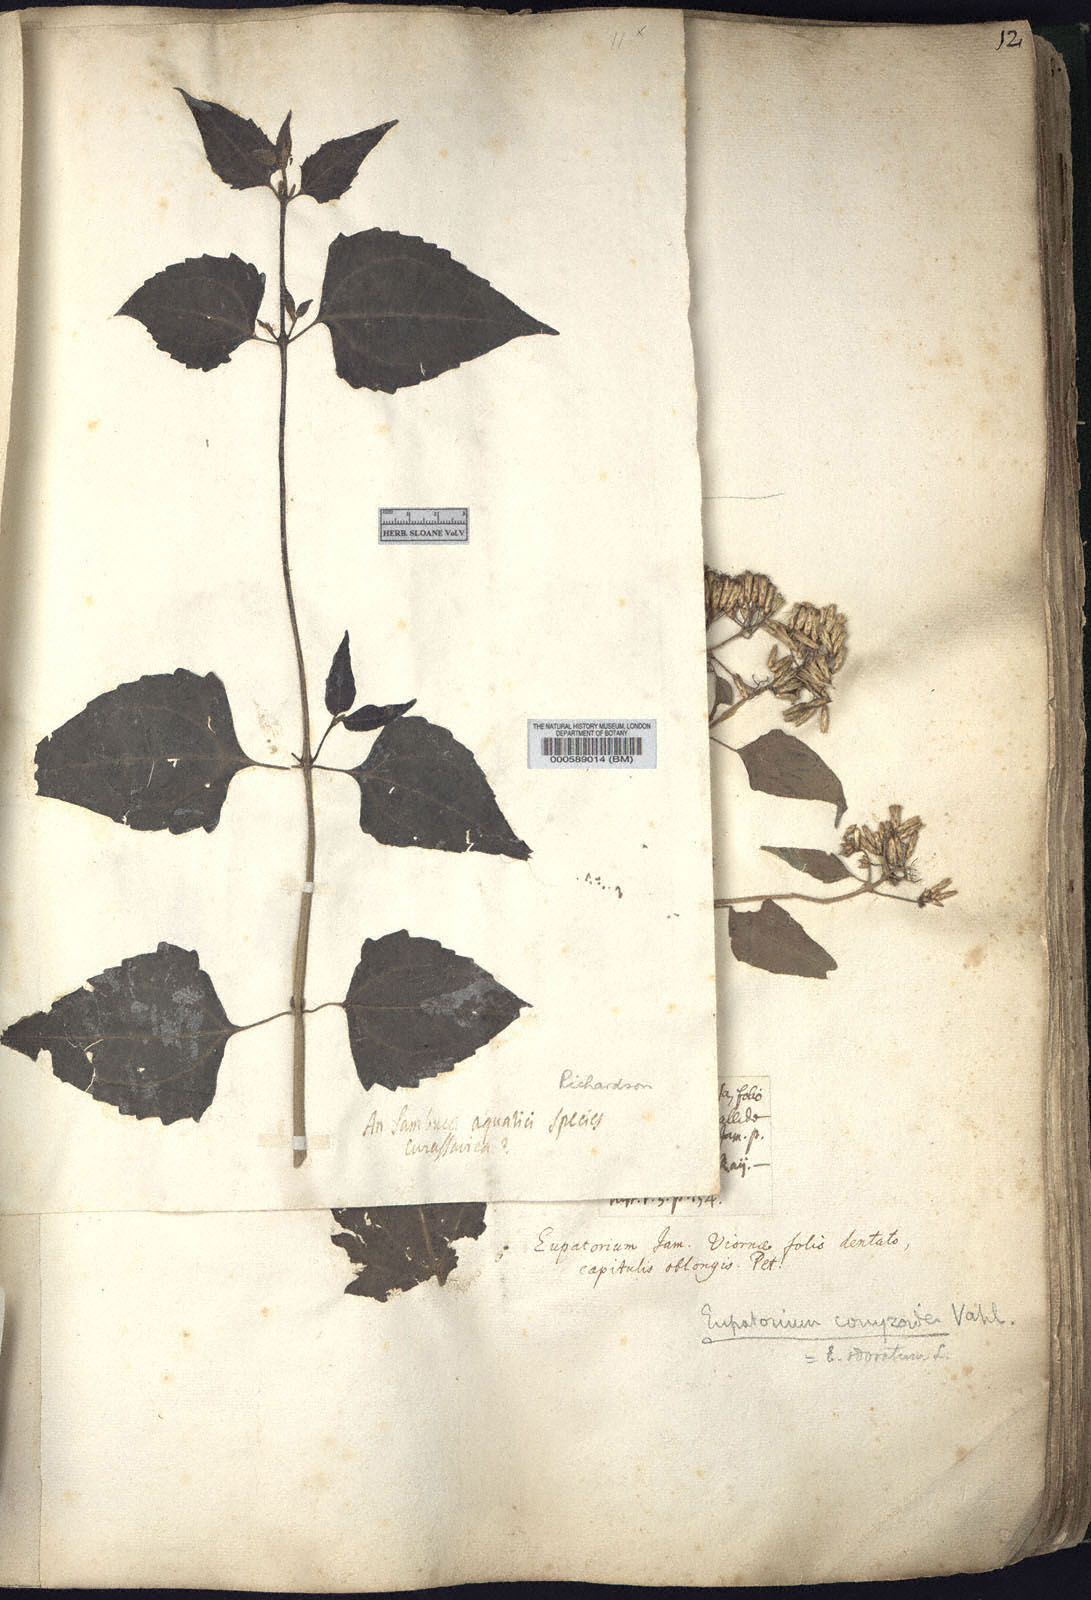 11 x
12
HERB. SLOANE Vol.V
THE NATURAL HISTORY MUSEUM, LONDON
DEPARTMENT OF BOTANY
000589014 (BM)
Richardson
An Sambuci aquatici species
Curassavica?
folio
allide
Jam. p.
Raij.—
Eupatorium Jam. Viornæ folio dentato,
capitulis oblongis. Pet.
Eupatorium conyzoides Vahl.
= E. odoratum L.